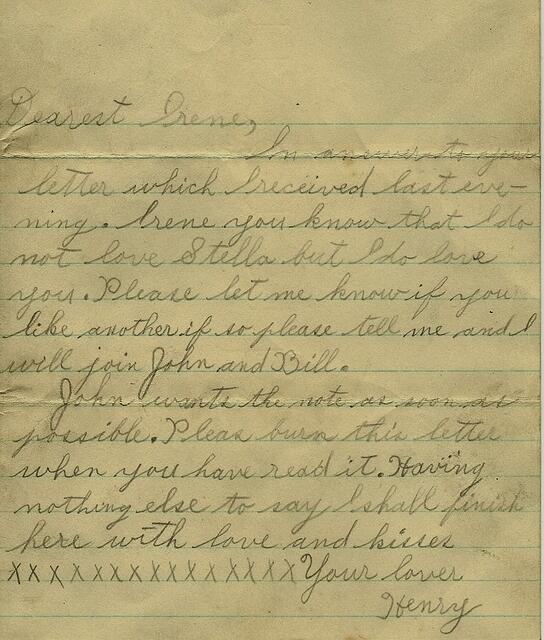 Dearest Irene,
In answer to your
letter which I received last eve-
ning. Irene you know that I do
not love Stella but I do love
you. Please let me know if you
like another if so please tell me and I
will join John and Bill.
John wants the note as soon as
possible. Pleas burn this letter
when you have read it. Having
nothing else to say I shall finish
here with love and kisses
XXXXXXXXXXXXXXXX Your lover
Henry